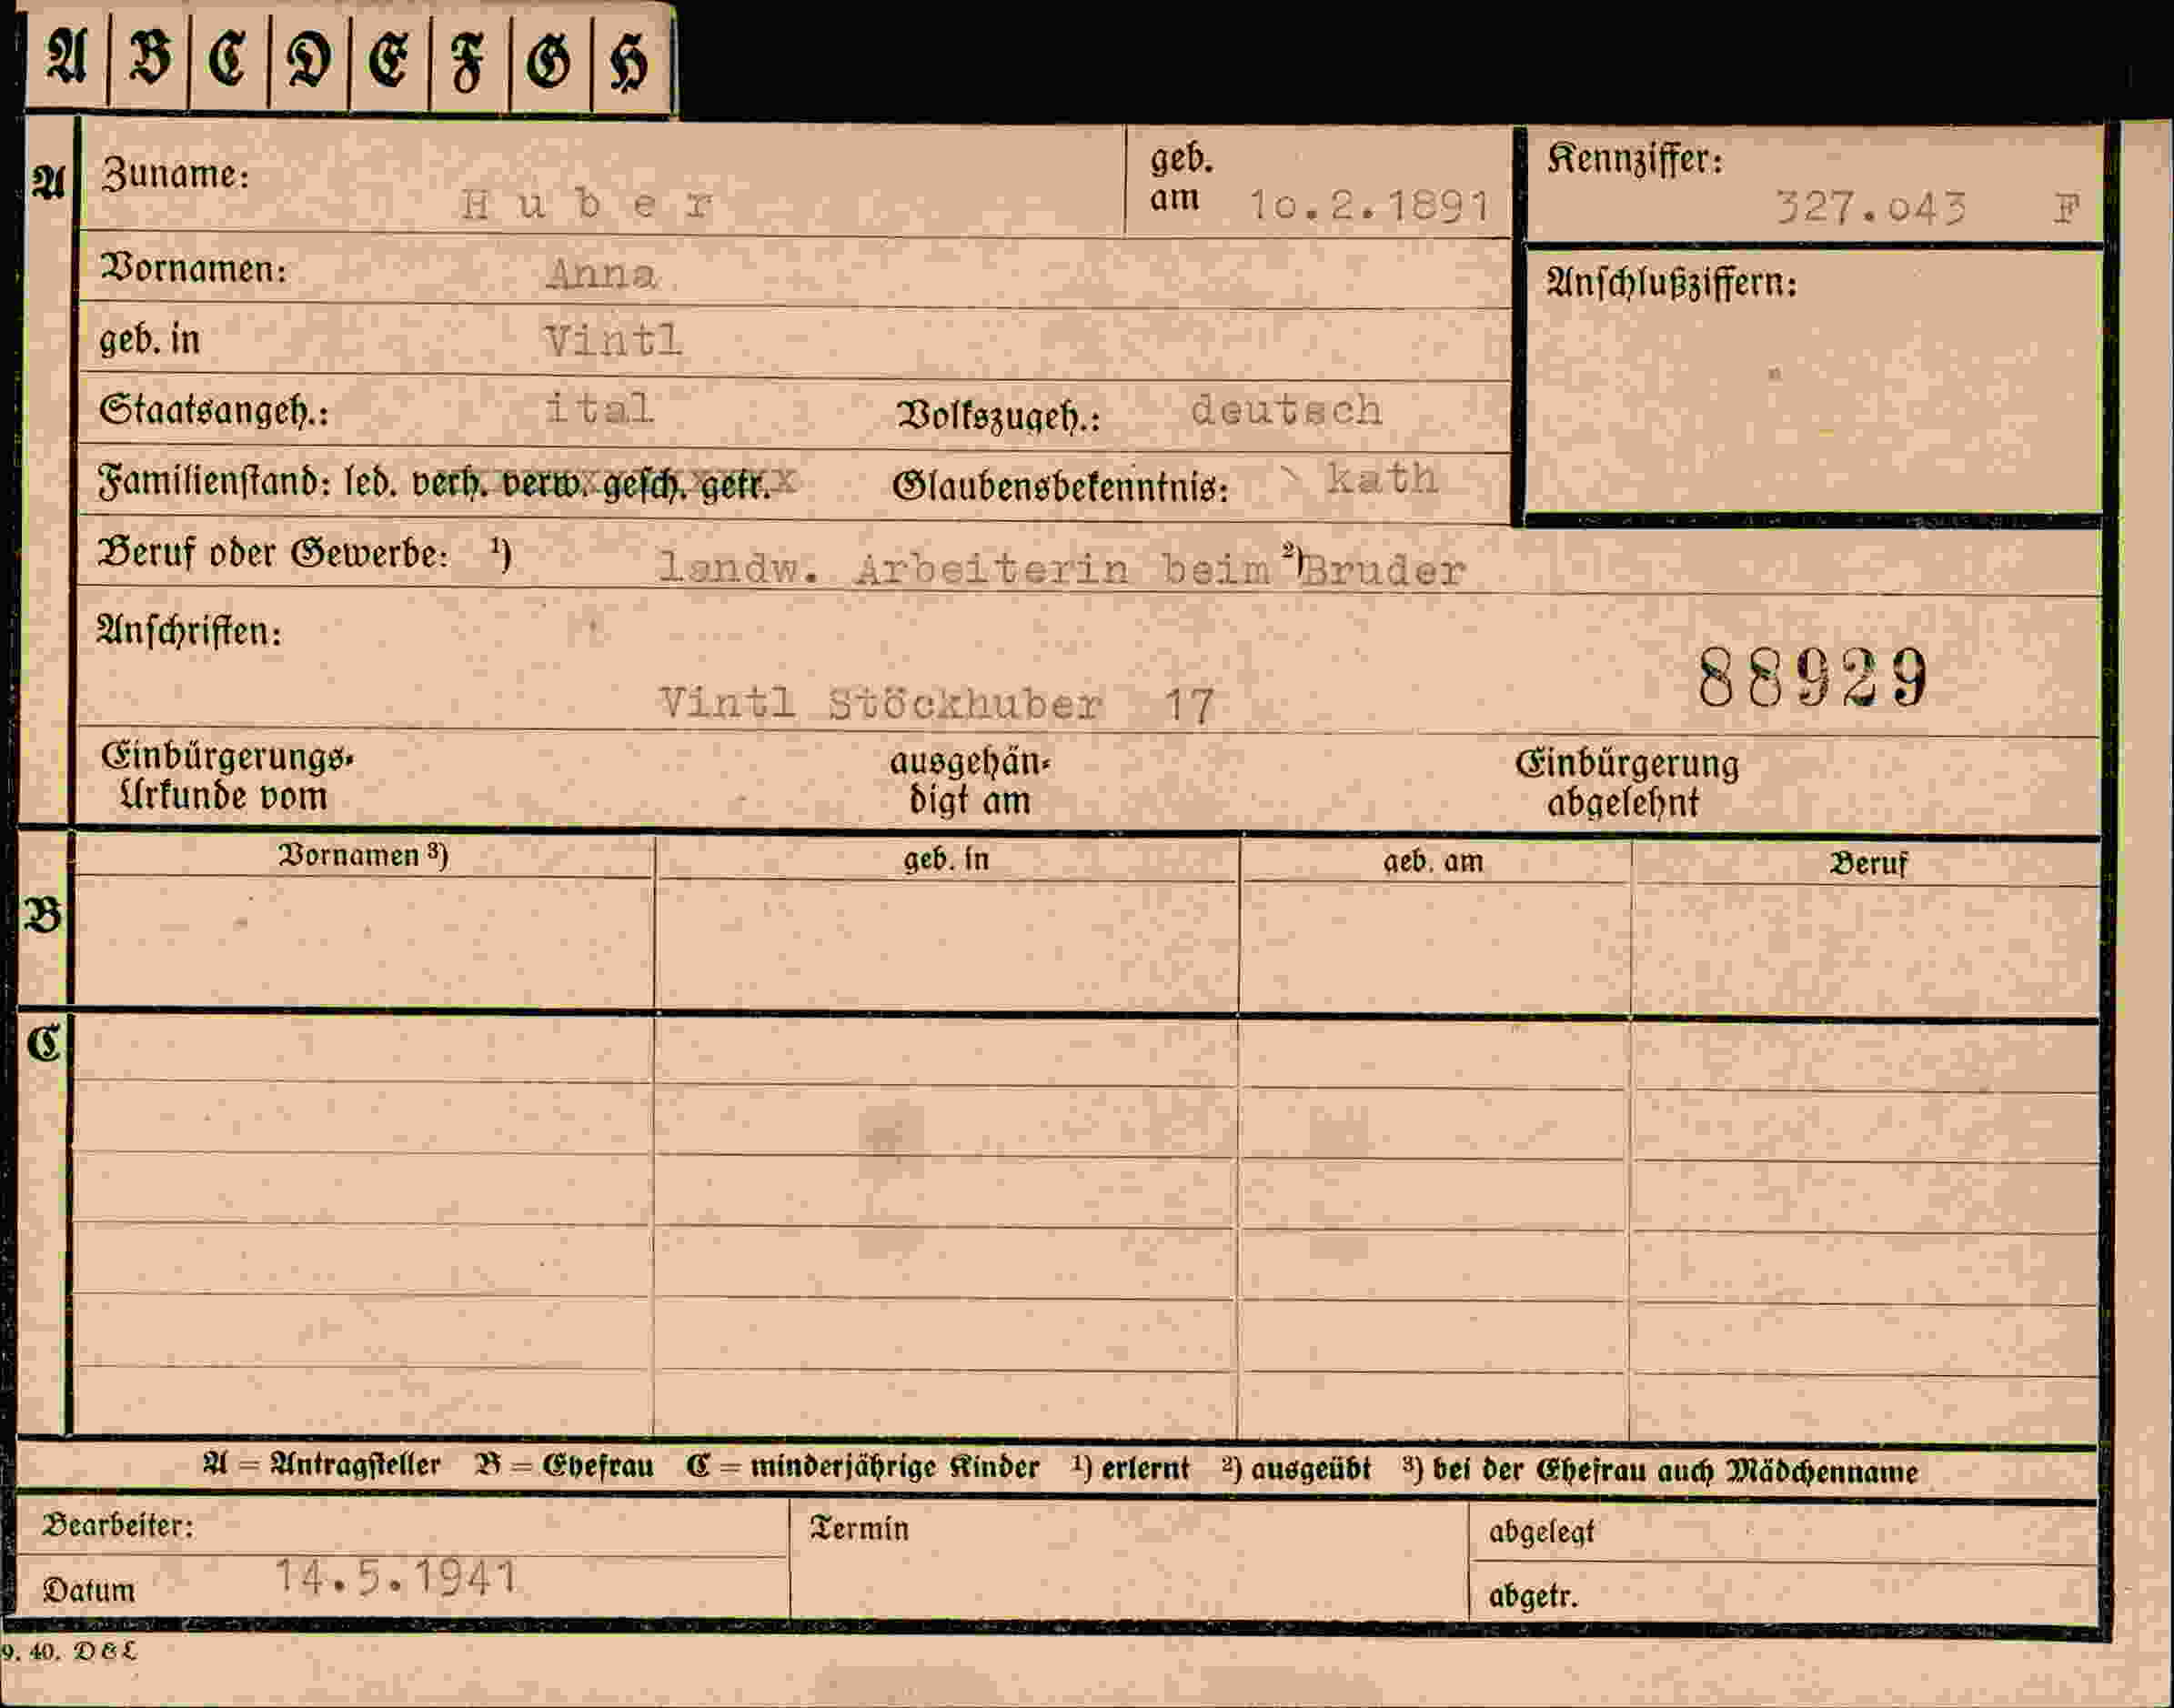 A B C D E F G H
A Zuname: Huber geb. am 10.2.1891 Kennziffer: 327.043 F
Vornamen: Anna Anschlußziffern:
geb. in Vintl
Staatsangeh.: ital Volkszugeh.: deutsch
Familienstand: led. verh. verw. gesch. getr. x Glaubensbekenntnis: kath
Beruf oder Gewerbe: ¹) landw. Arbeiterin beim ²) Bruder
Anschriften:
88929
Vintl Stöckhuber 17
Einbürgerungs- ausgehän- Einbürgerung
Urkunde vom digt am abgelehnt
Vornamen ³) geb. in geb. am Beruf
B
C
A = Antragsteller B = Ehefrau C = minderjährige Kinder ¹) erlernt ²) ausgeübt ³) bei der Ehefrau auch Mädchenname
Bearbeiter: Termin abgelegt
Datum 14.5.1941 abgetr.
9. 40. D&L